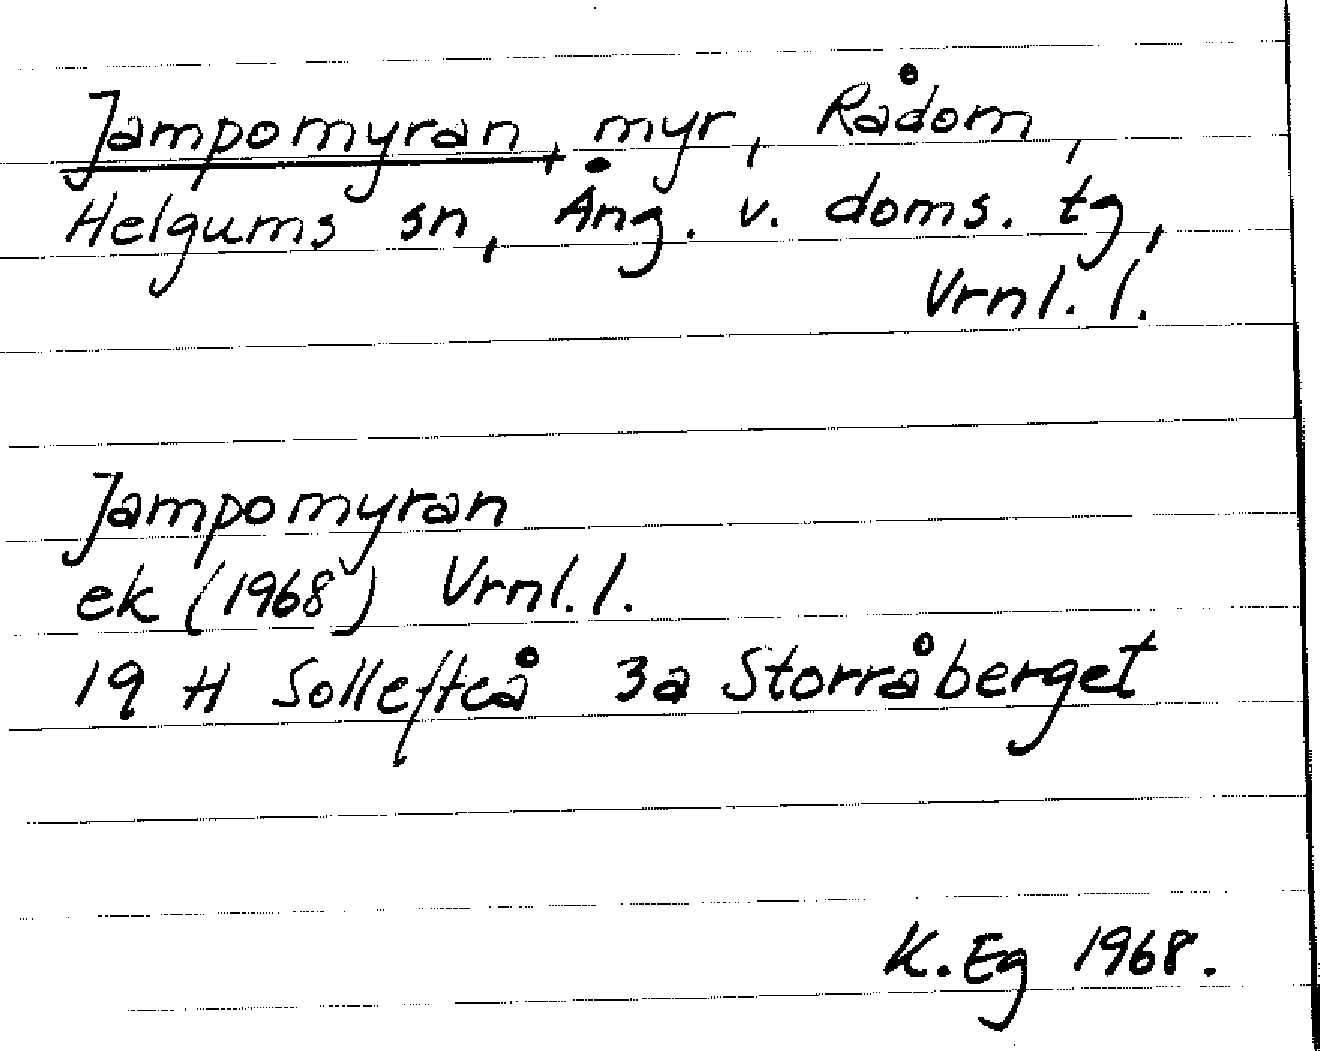 Jampomyran, myr, Rådom,
Helgums sn, Ång. v. doms. tg,
Vrnl. l.
Jampomyran
ek (1968) Vrnl. l.
19 H Sollefteå 3a Storråberget
K. Eg 1968.